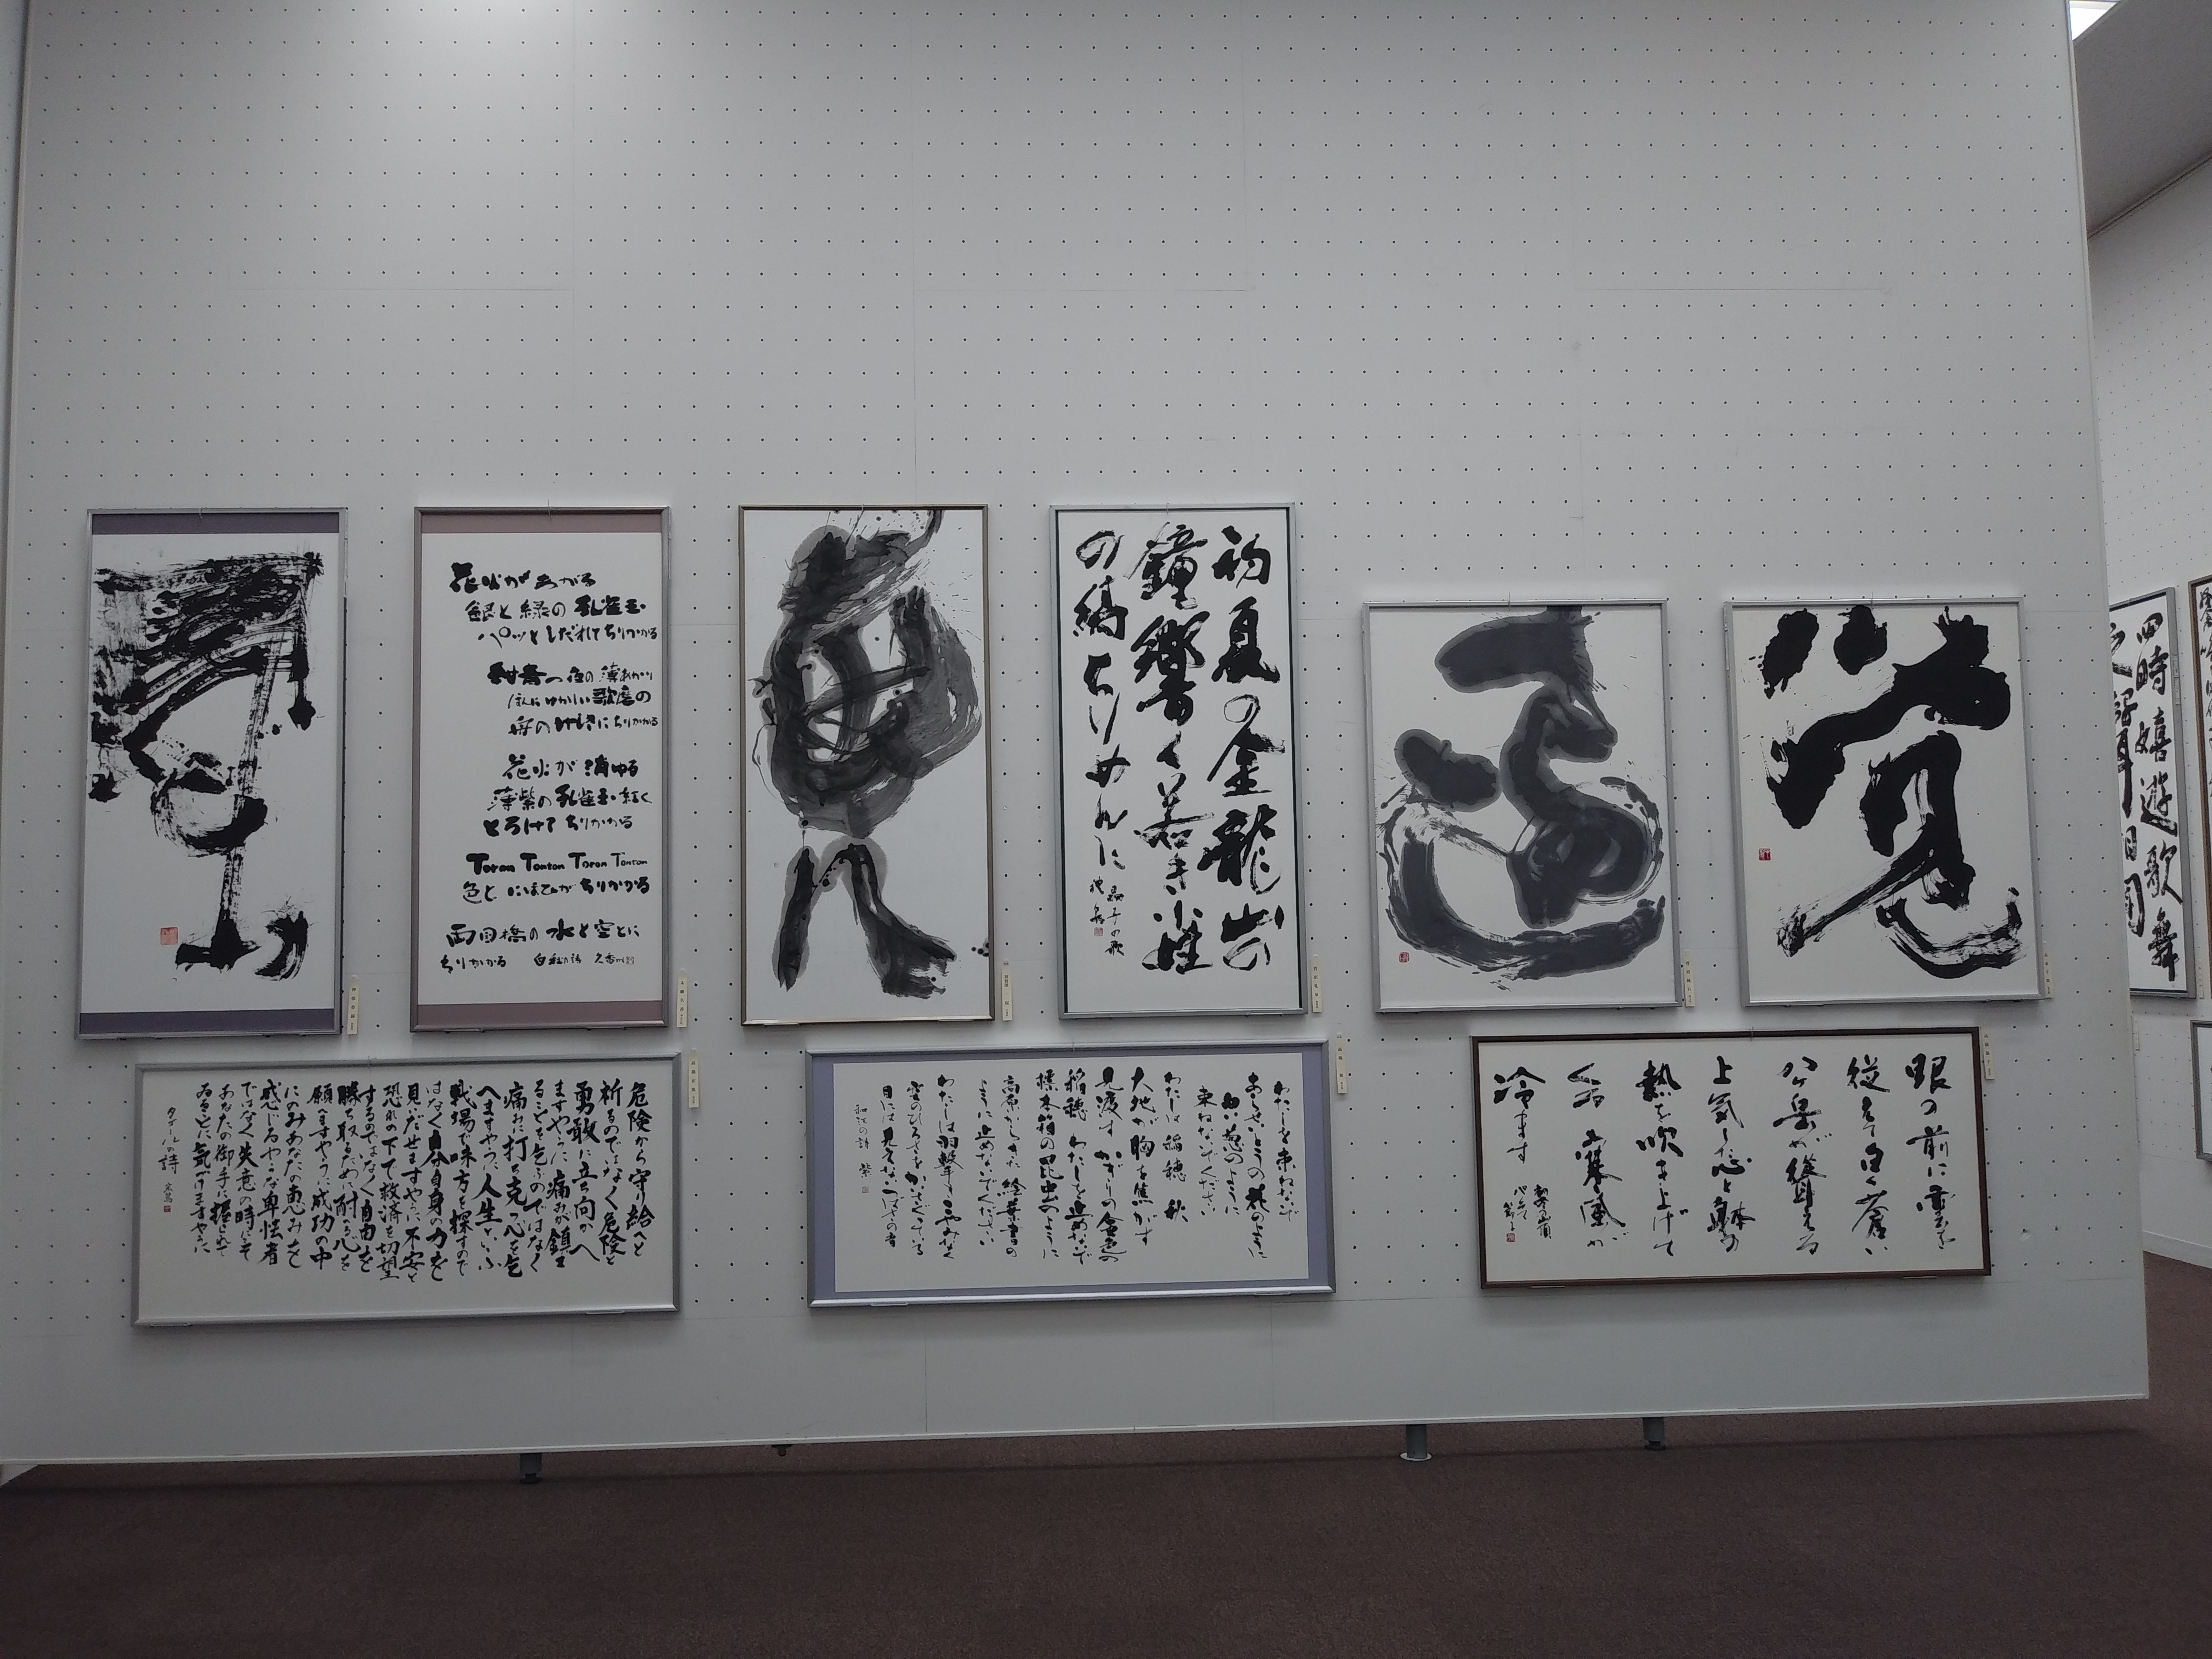 花火があがる
銀と緑の孔雀玉
パッとしだれてちりかかる
紺青の夜の薄あかり
ほんにゆかしい歌麿の
舟のけしきにちりかかる
花火が消ゆる
薄紫の孔雀玉 紅く
とろけてちりかかる
Toron Tonton Toron Tonton
色と にほひがちりかかる
両国橋の水と空とに
ちりかかる 白秋の詩
初夏の金龍山の
鐘響く若き小姓
の縞ちりめんに
晶子の歌
覚
危険から守り給へと
祈るのではなく危険と
勇敢に立ち向かへ
ますやうに 痛みが鎮ま
ることを乞ふのではなく
痛みに打ち克つ心を乞
へますやうに 人生といふ
戦場で味方を探すので
はなく自分自身の力を
見いだせますやうに 不安と
恐れの下で救済を切望
するのではなく自由を
勝ち取るために耐へる心を
願へますやうに 成功の中
にのみあなたの恵みを
感じるやうな卑怯者
ではなく失意の時にこそ
あなたの御手に握られて
ゐることに気が付けますやうに
タゴールの詩
わたしを束ねないで
あらせいとうの花のように
白い葱のように
束ねないでください
わたしは稲穂 秋
大地が胸を焦がす
見渡すかぎりの金色の
稲穂 わたしを止めないで
標本箱の昆虫のように
高原からきた絵葉書の
ように止めないでください
わたしは羽撃き こやみなく
空のひろさをかいさぐっている
目には見えないつばさの音
和江の詩 紫
眼の前に雲を
従えて白く蒼い
八ケ岳が聳える
上気した心と躰の
熱を吹き上げて
くる 寒風が
冷ます
四時嬉遊歌舞